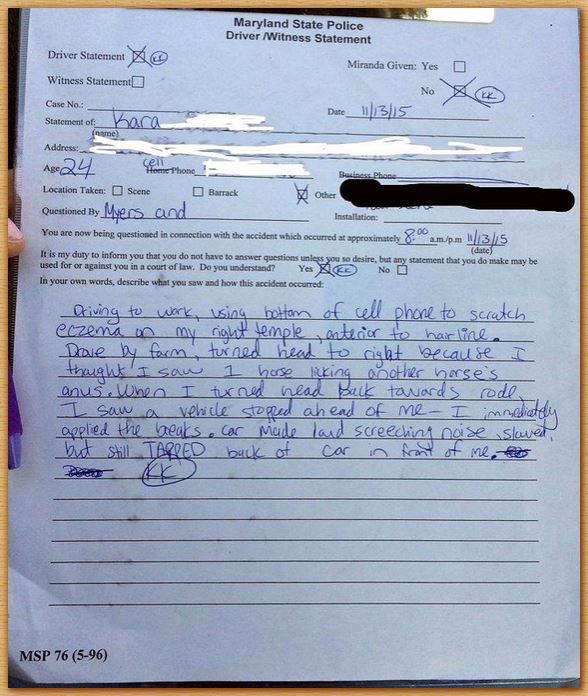 Maryland State Police
Driver /Witness Statement
Driver Statement KK
Miranda Given: Yes
Witness Statement
No KK
Case No.:
Date 11/13/15
Statement of: Kara
(name)
Address:
Age 24 cell Home Phone Business Phone
Location Taken: Scene Barrack Other
Questioned By Myers and Installation:
You are now being questioned in connection with the accident which occurred at approximately 8:00 a.m./p.m 11/13/15
(date)
It is my duty to inform you that you do not have to answer questions unless you so desire, but any statement that you do make may be
used for or against you in a court of law. Do you understand? Yes KK No
In your own words, describe what you saw and how this accident occurred:
Driving to work, using bottom of cell phone to scratch
eczema on my right temple, anterior to hairline.
Drove by farm, turned head to right because I
thought I saw 1 horse licking another horse's
anus. When I turned head back towards rode,
I saw a vehicle stopped ahead of me - I immediately
applied the breaks. car made loud screeching noise, slowed,
but still TAPPED back of car in front of me.
KK
MSP 76 (5-96)